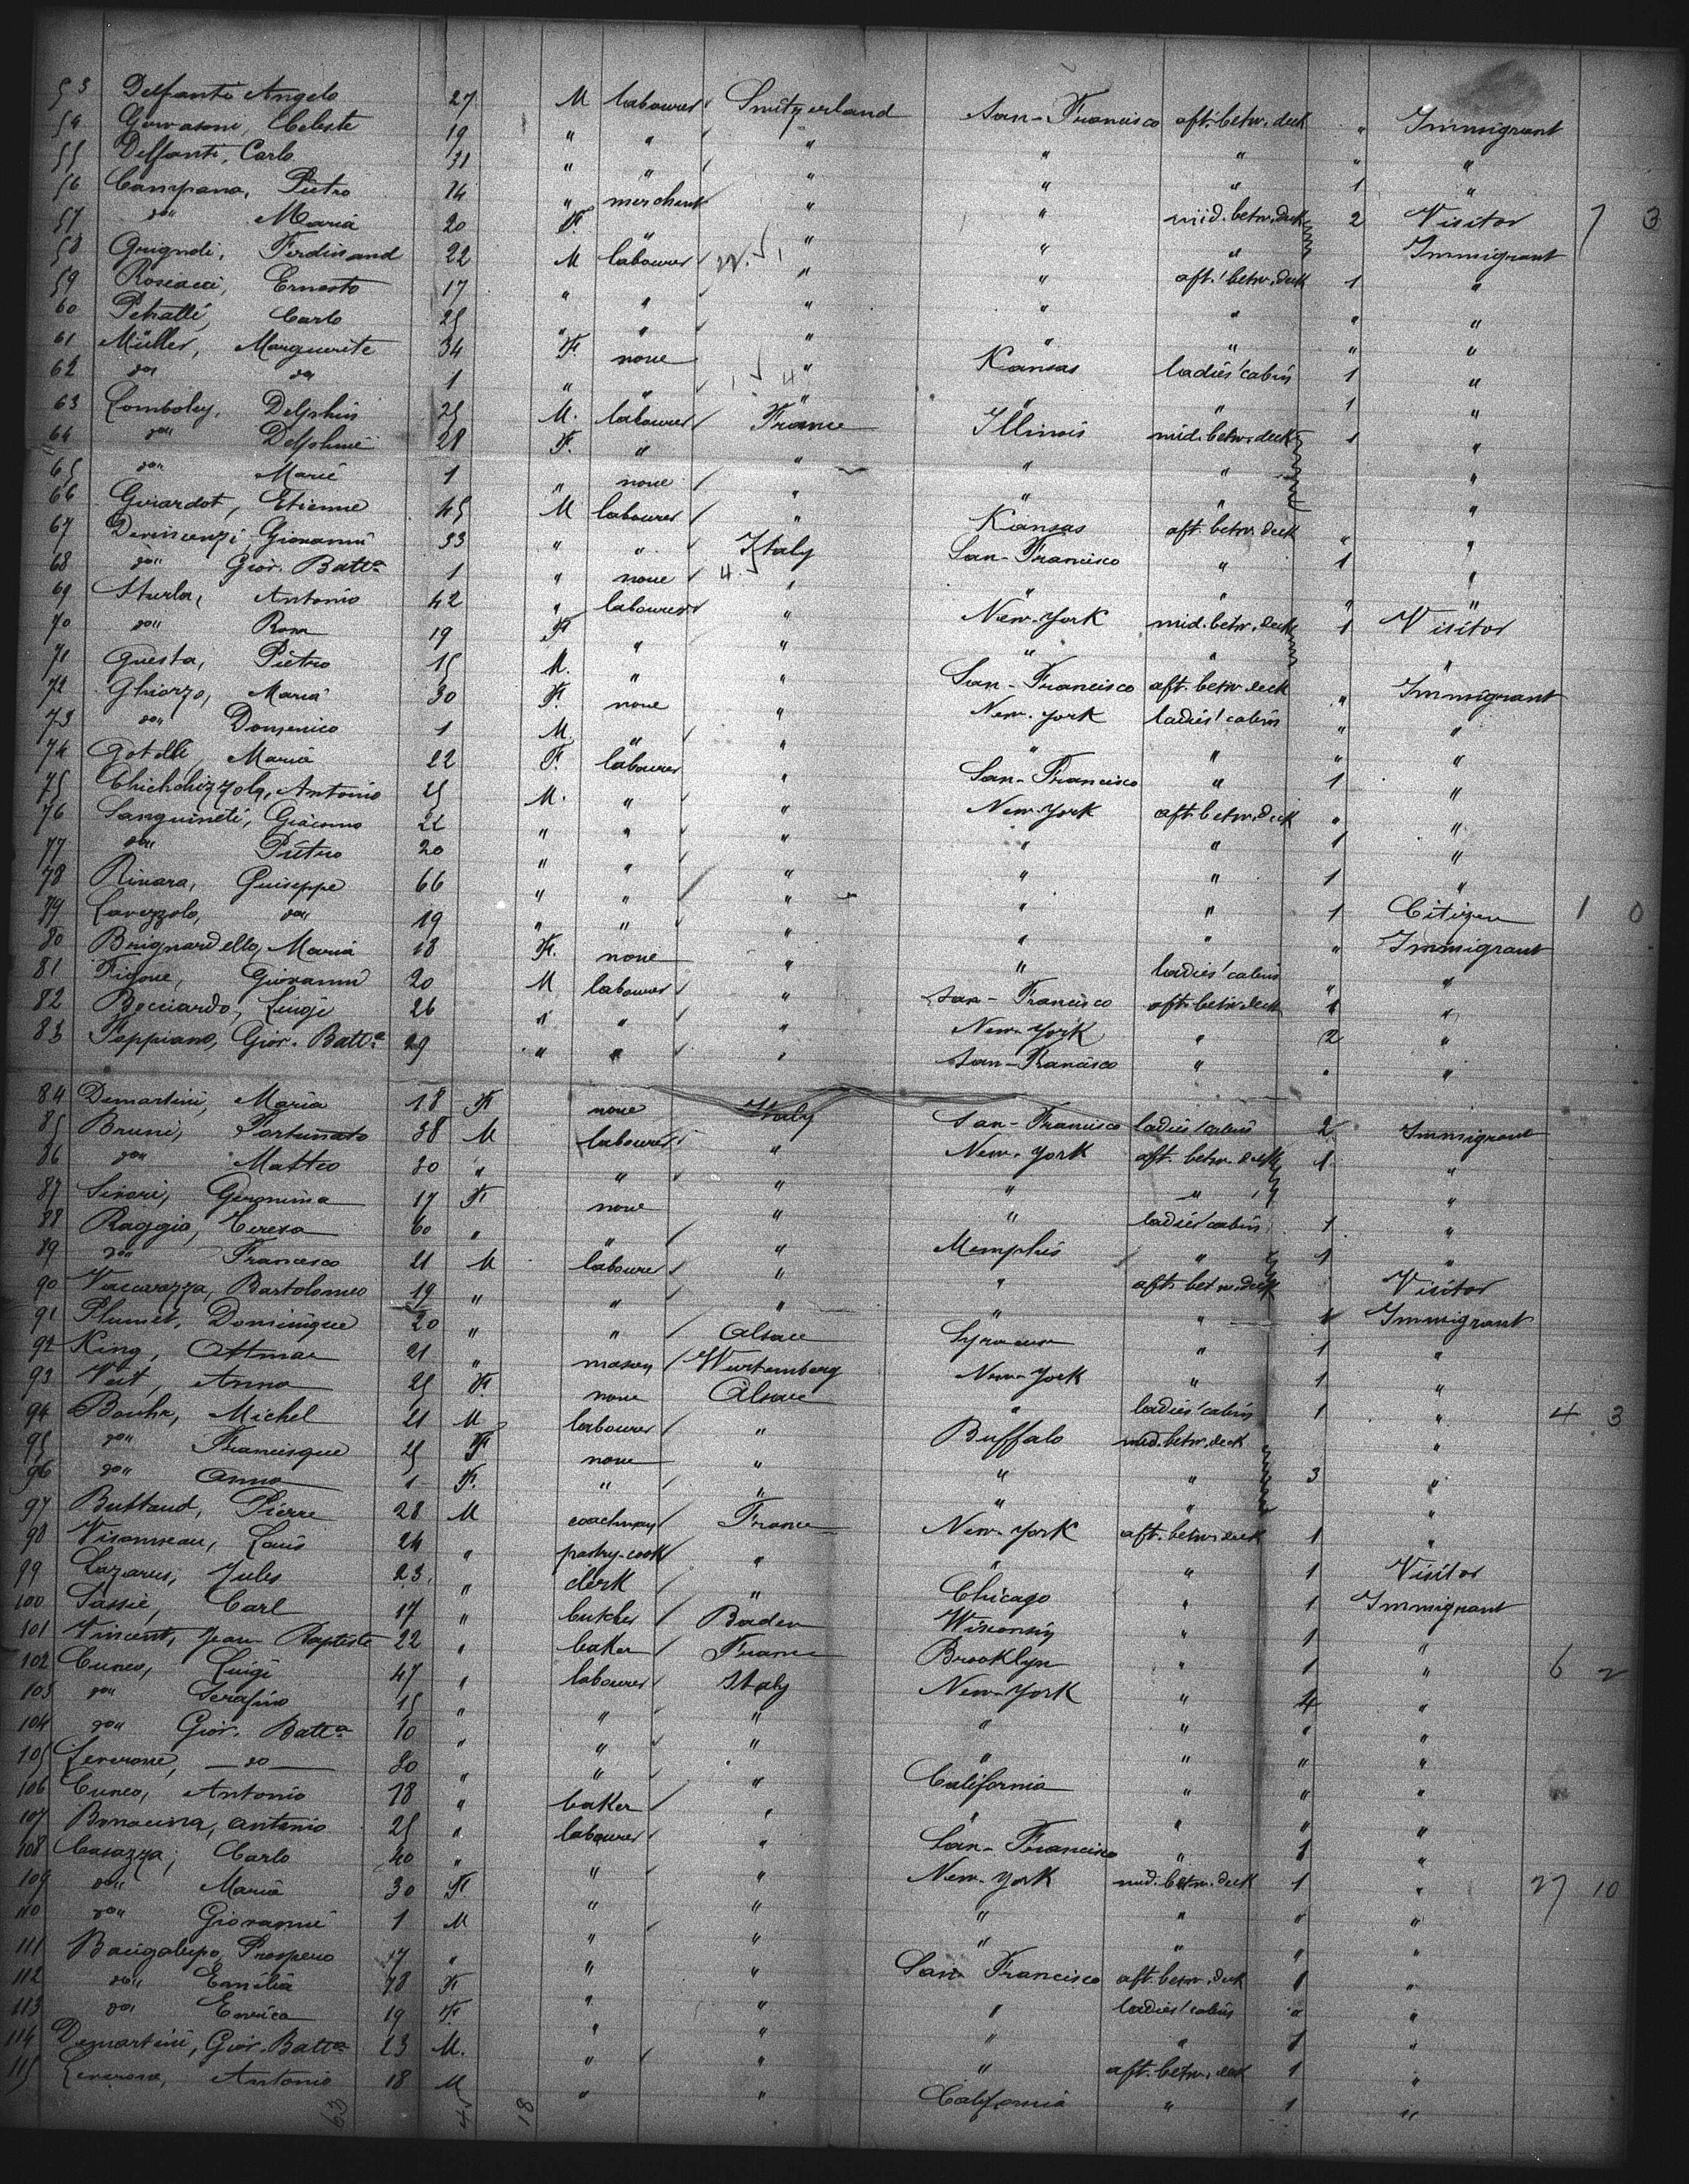 53 Delfanti Angelo 27 M labourer Switzerland San-Francisco aft. betw. deck " Immigrant
54 Gervasoni, Celeste 19 " " " " " " "
55 Delfanti, Carlo 31 " " " " " 1 "
56 Campana, Pietro 24 " merchant " " mid. betw. deck 2 Visitor 7 3
57 do" Maria 20 F. " " " " Immigrant
58 Grignoli, Ferdinand 22 M labourer " " aft. betw. deck 1 "
59 Rosciacci, Ernesto 17 " " " " " " "
60 Petralli, Carlo 25 " " " " " " "
61 Müller, Marguerite 34 F. none " Kansas ladies' cabin 1 "
62 do" do" 1 " " " " " 1 "
63 Lomboley, Delphin 25 M. labourer France Illinois mid. betw. deck 1 "
64 do" Delphine 28 F. " " " " "
65 do" Marie 1 " none " " " "
66 Girardot, Etienne 45 M labourer " Kansas aft. betw. deck " "
67 Devincenzi, Giovanni 33 " " Italy San-Francisco " 1 "
68 do" Giov. Batta 1 " none " " " " "
69 Sturla, Antonio 42 " labourer " New-York mid. betw. deck 1 Visitor
70 do" Rosa 19 F " " " " "
71 Questa, Pietro 15 M. " " San-Francisco aft. betw. deck " Immigrant
72 Ghiorzo, Maria 30 F. none " New-York ladies' cabin " "
73 do" Domenico 1 M. " " " " " "
74 Gotelli, Maria 22 F. labourer " San-Francisco " 1 "
75 Chichchizzola, Antonio 25 M. " " New-York aft. betw. deck " "
76 Sanguineti, Giacomo 22 " " " " " 1 "
77 do" Pietro 20 " " " " " 1 "
78 Rivara, Guiseppe 66 " " " " " 1 Citizen 1 0
79 Lavezzolo, do" 19 " " " " " " Immigrant
80 Brignardello, Maria 18 F. none " " ladies' cabin " "
81 Figone, Giovanni 20 M labourer " San-Francisco aft. betw. deck 1 "
82 Bacciardo, Luigi 26 " " " New-York " 2 "
83 Foppiano, Giov. Batta 29 " " " San-Francisco " " "
84 Demartini, Maria 18 F none Italy San-Francisco ladies' cabin 2 Immigrant
85 Bruni, Fortunato 38 M labourer " New-York aft. betw. deck 1 "
86 do" Matteo 30 " " " " " "
87 Sivori, Geronima 17 F none " " ladies' cabin 1 "
88 Raggio, Teresa 60 " " " Memphis " 1 "
89 do" Francesco 21 M labourer " " aft. betw. deck Visitor
90 Vaccarezza, Bartolomeo 19 " " " " " 1 Immigrant
91 Plumet, Dominique 20 " " Alsace Syracuse " 1 "
92 King, Ottmar 21 " mason Wurtemberg New-York " 1 "
93 Veit, Anna 25 F. none Alsace " ladies' cabin 1 " 4 3
94 Bouhr, Michel 21 M labourer " Buffalo mid. betw. deck "
95 do" Francisque 25 F none " " " 3 "
96 do" Anna 1 F. " " " " "
97 Buttaud, Pierre 28 M coachman France New-York aft. betw. deck 1 "
98 Visonneau, Louis 24 " pastry-cook " " " 1 Visitor
99 Lazarus, Jules 23 " clerk " Chicago " 1 Immigrant
100 Sassie, Carl 17 " butcher Baden Wisconsin " 1 "
101 Vincent, Jean Baptiste 22 " baker France Brooklyn " 1 " 6 2
102 Cuneo, Luigi 47 " labourer Italy New-York " 4 "
103 do" Serafino 15 " " " " " " "
104 do" Giov. Batta 10 " " " " " " "
105 Leverone, — do — 30 " " " California " " "
106 Cuneo, Antonio 18 " baker " " " " "
107 Bonacina, Antonio 25 " labourer " San-Francisco " 1 "
108 Casazza, Carlo 40 " " " New-York mid. betw. deck 1 " 27 10
109 do" Maria 30 F " " " " " "
110 do" Giovanni 1 M " " " " " "
111 Bacigalupo, Prospero 17 " " " San Francisco aft. betw. deck 1 "
112 do" Emilia 18 F " " " ladies' cabin " "
113 do" Enrica 19 F. " " " " 1 "
114 Demartini, Giov. Batta 23 M. " " " aft. betw. deck 1 "
115 Leverone, Antonio 18 M " " California " 1 "
63 45 18